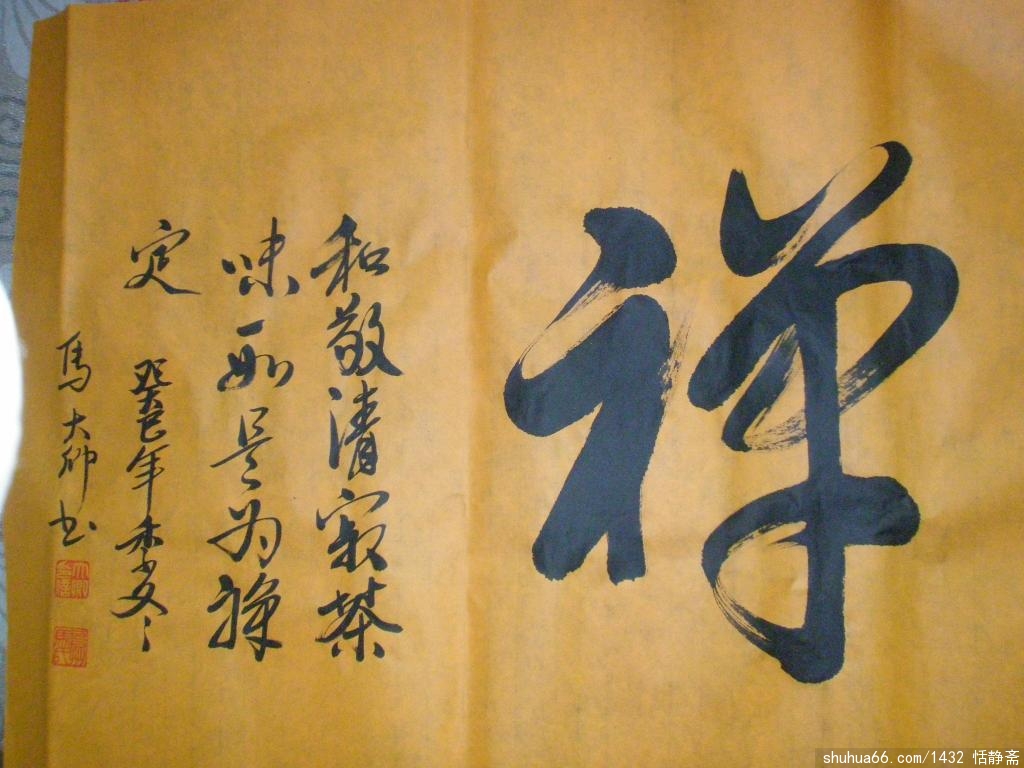 禅
和敬清寂茶
味一如是为禅
定
癸巳年季冬
馬大卿书
shuhua66.com/1432 恬静斋